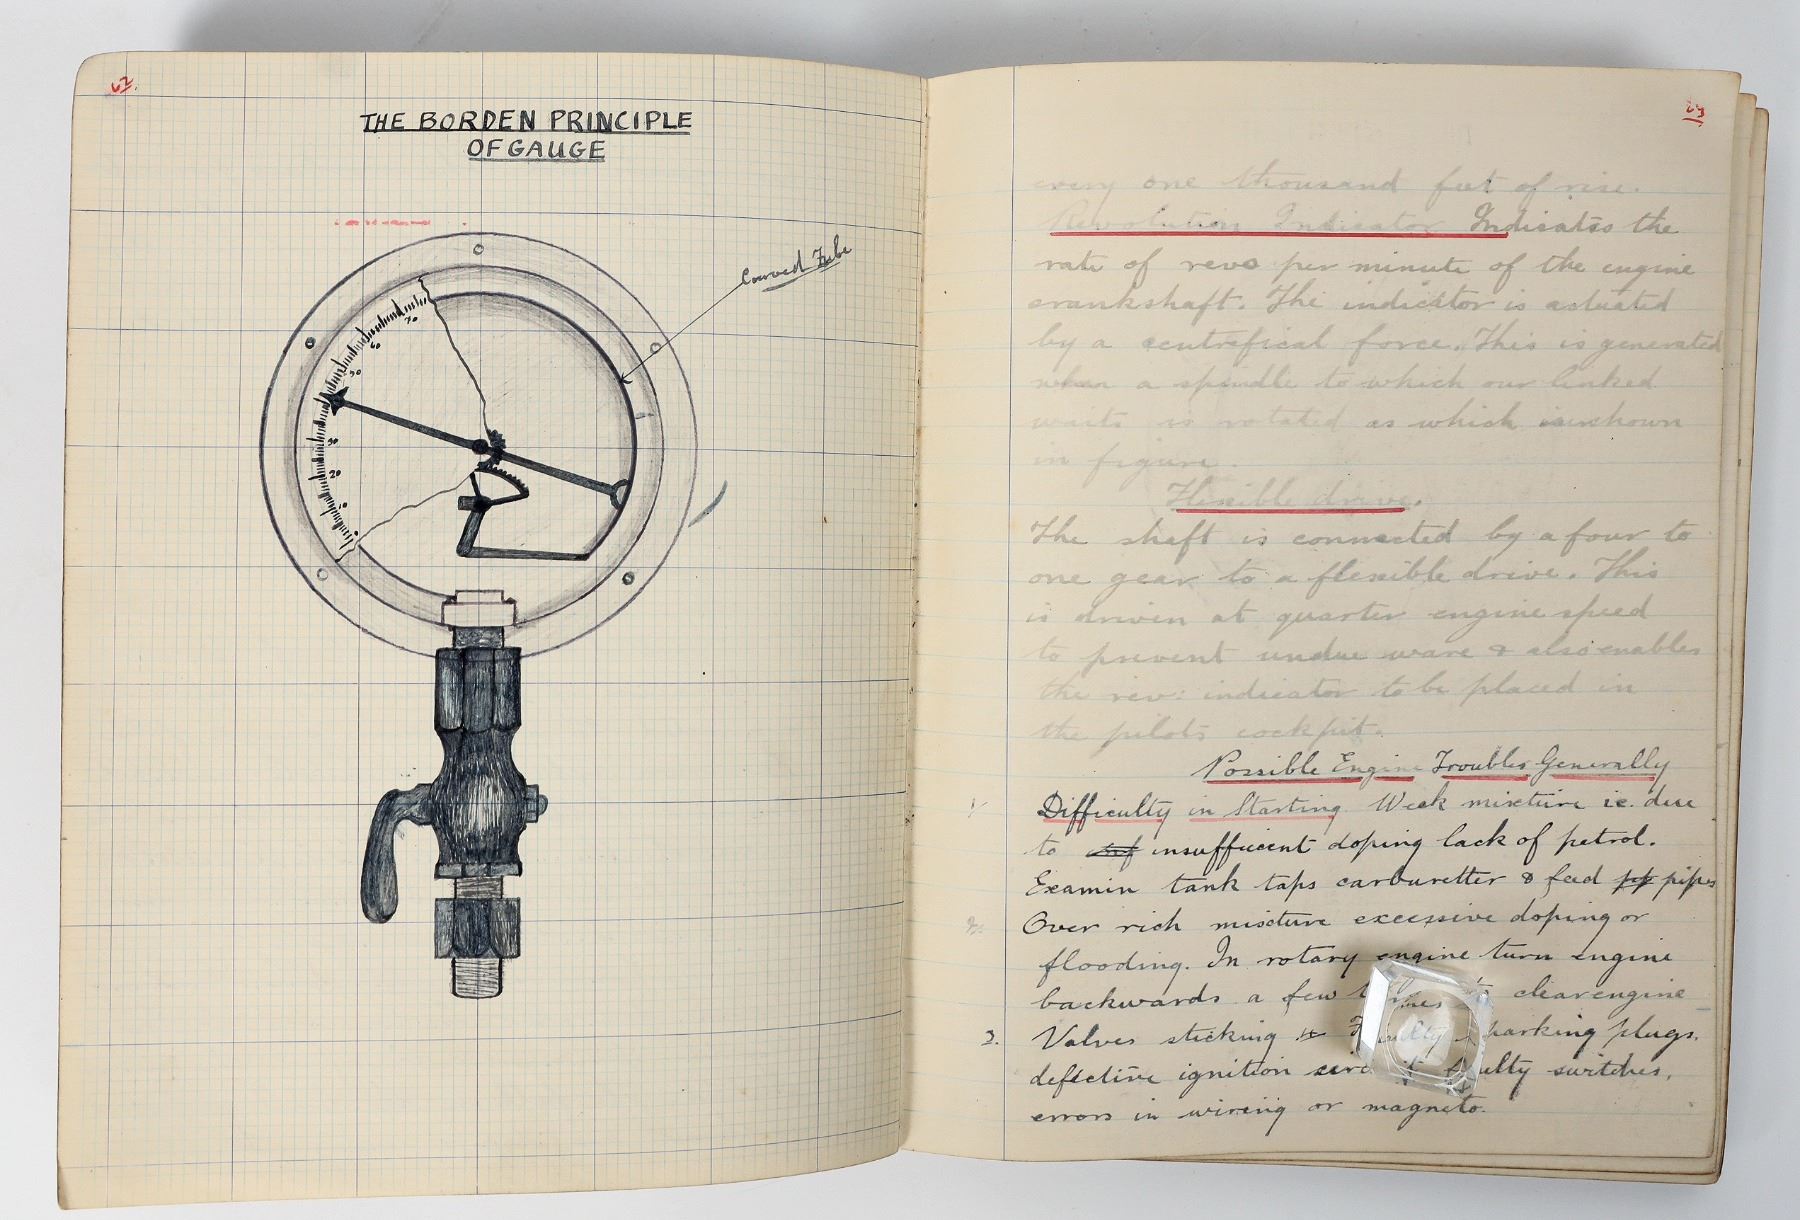 62.
THE BORDEN PRINCIPLE
OF GAUGE
Curved Tube
70
60
50
30
20
10
0
63
every one thousand feet of rise.
Revolution Indicator Indicates the
rate of revs per minute of the engine
crankshaft. The indicator is actuated
by a centrefical force. This is generated
when a spindle to which our linked
waits is rotated as which is shown
in figure.
Flexible drive.
The shaft is connected by a four to
one gear to a flexible drive. This
is driven at quarter engine speed
to prevent undue ware & also enables
the rev: indicator to be placed in
the pilots cockpit.
Possible Engine Troubles Generally
1/ Difficulty in Starting Weak mixture ie. due
to insufficent doping lack of petrol.
Examin tank taps carburetter & feed pipes
2. Over rich mixture excessive doping or
flooding. In rotary engine turn engine
backwards a few times to clear engine
3. Valves sticking Faulty sparking plugs.
defective ignition circuit faulty switches,
errors in wireing or magneto.